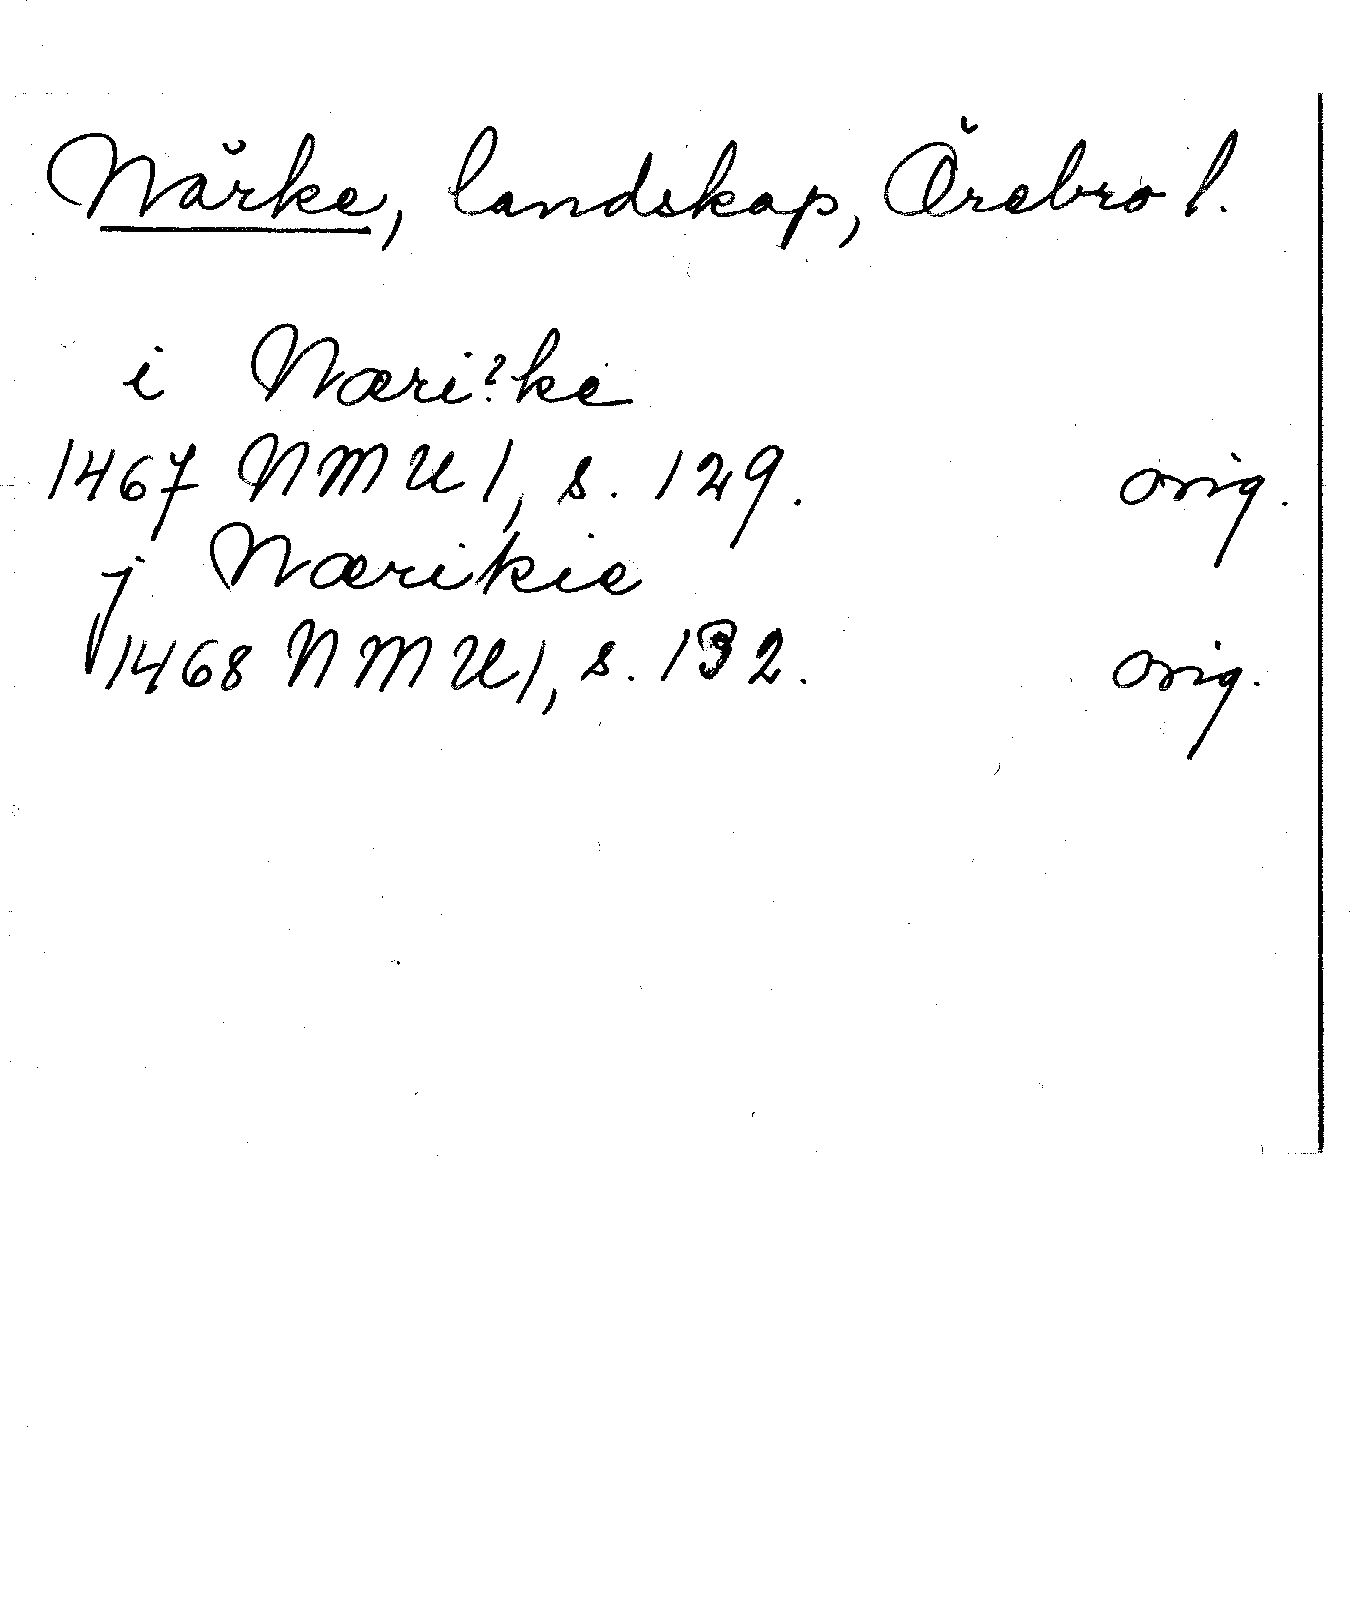 Närke, landskap, Örebro l.
i Næri?ke
1467 NMU 1, s. 129. orig.
j Nærikie
1468 NMU 1, s. 132. orig.